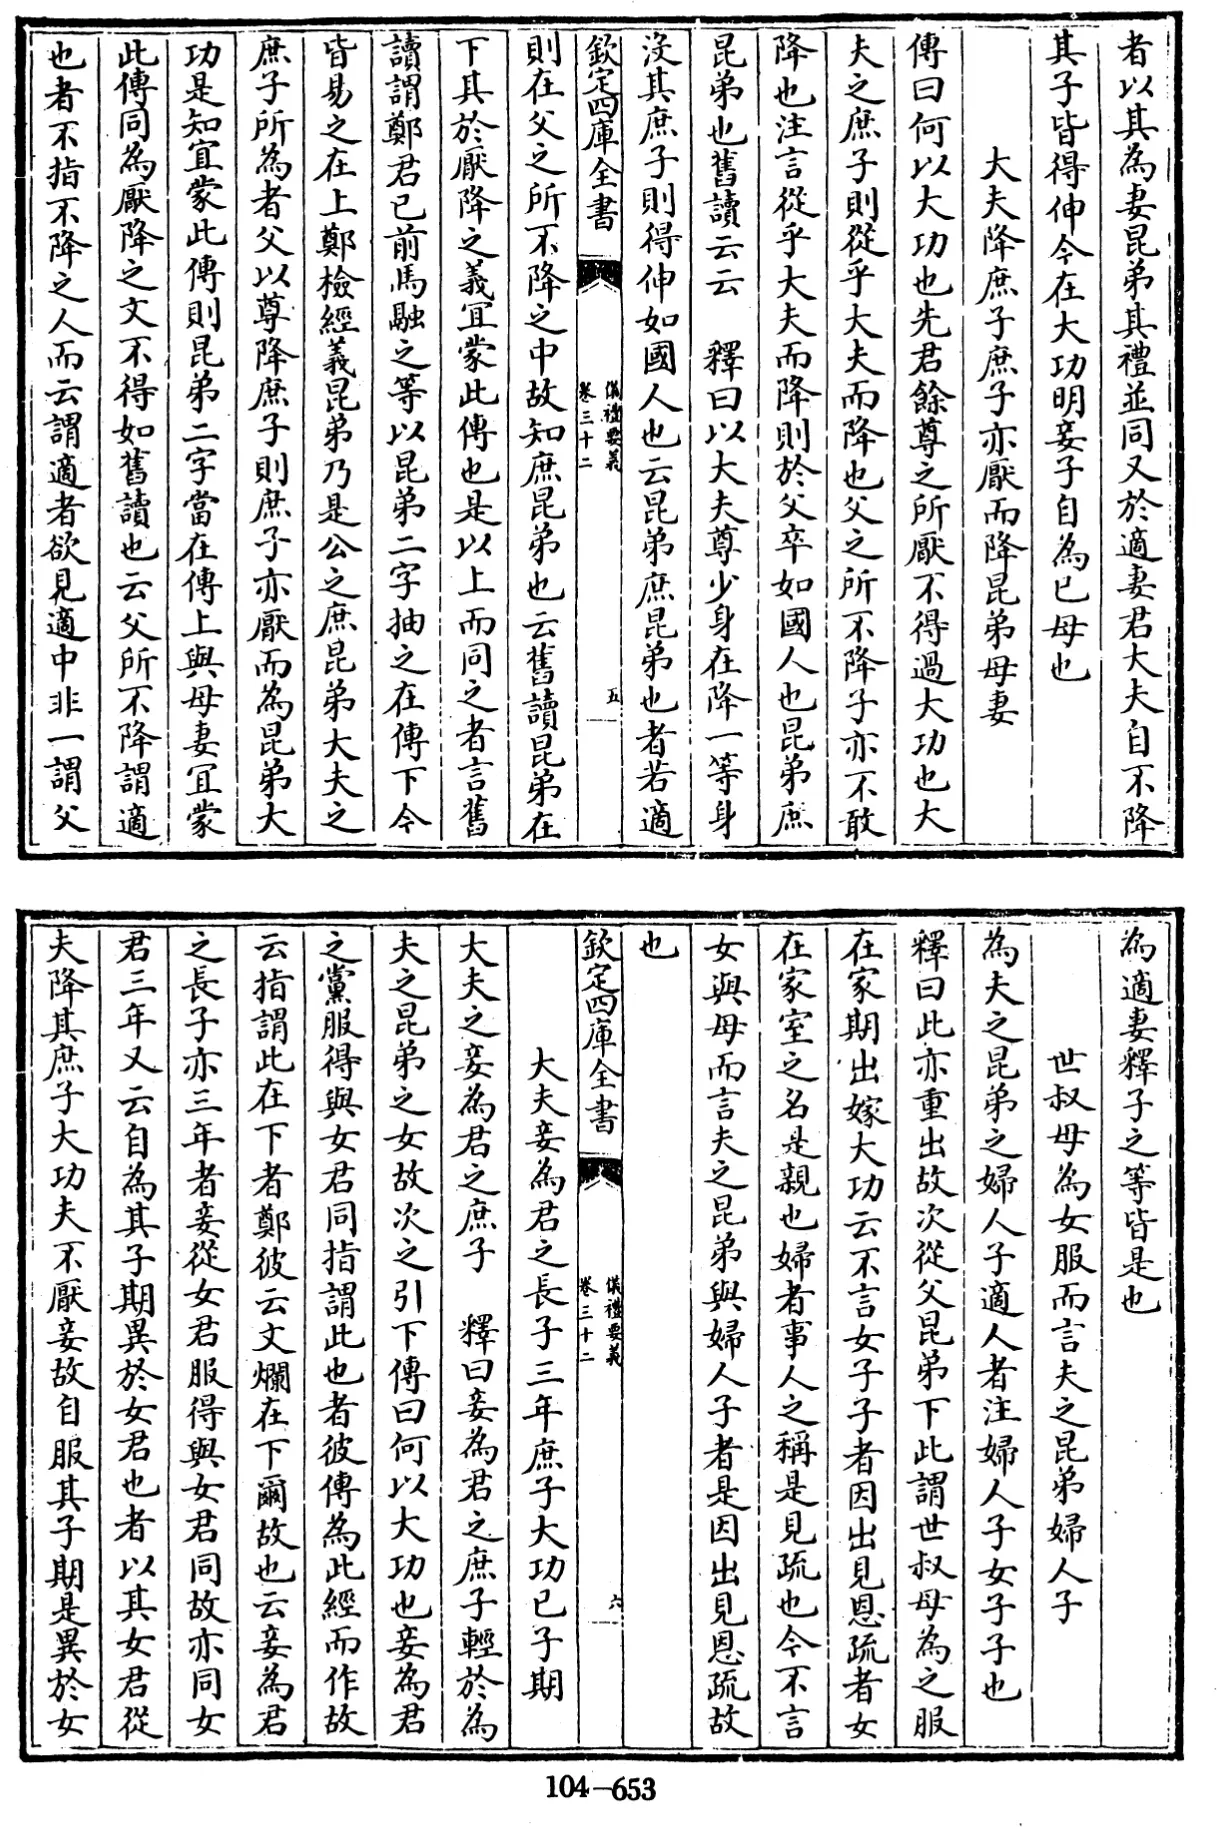 者以其為妻昆弟其禮並同又於適妻君大夫自不降
其子皆得伸今在大功明妾子自為已母也
大夫降庶子庶子亦厭而降昆弟母妻
傳曰何以大功也先君餘尊之所厭不得過大功也大
夫之庶子則從乎大夫而降也父之所不降子亦不敢
降也注言從乎大夫而降則於父卒如國人也昆弟庶
昆弟也舊讀云云 釋曰以大夫尊少身在降一等身
沒其庶子則得伸如國人也云昆弟庶昆弟也者若適
欽定四庫全書
儀禮要義
卷三十二
五
則在父之所不降之中故知庶昆弟也云舊讀昆弟在
下其於厭降之義宜蒙此傳也是以上而同之者言舊
讀謂鄭君已前馬融之等以昆弟二字抽之在傳下今
皆易之在上鄭檢經義昆弟乃是公之庶昆弟大夫之
庶子所為者父以尊降庶子則庶子亦厭而為昆弟大
功是知宜蒙此傳則昆弟二字當在傳上與母妻宜蒙
此傳同為厭降之文不得如舊讀也云父所不降謂適
也者不指不降之人而云謂適者欲見適中非一謂父
為適妻釋子之等皆是也
世叔母為女服而言夫之昆弟婦人子
為夫之昆弟之婦人子適人者注婦人子女子子也
釋曰此亦重出故次從父昆弟下此謂世叔母為之服
在家期出嫁大功云不言女子子者因出見恩疏者女
在家室之名是親也婦者事人之稱是見疏也今不言
女與母而言夫之昆弟與婦人子者是因出見恩疏故
也
欽定四庫全書
儀禮要義
卷三十二
六
大夫妾為君之長子三年庶子大功已子期
大夫之妾為君之庶子 釋曰妾為君之庶子輕於為
夫之昆弟之女故次之引下傳曰何以大功也妾為君
之黨服得與女君同指謂此也者彼傳為此經而作故
云指謂此在下者鄭彼云文爛在下爾故也云妾為君
之長子亦三年者妾從女君服得與女君同故亦同女
君三年又云自為其子期異於女君也者以其女君從
夫降其庶子大功夫不厭妾故自服其子期是異於女
104-653